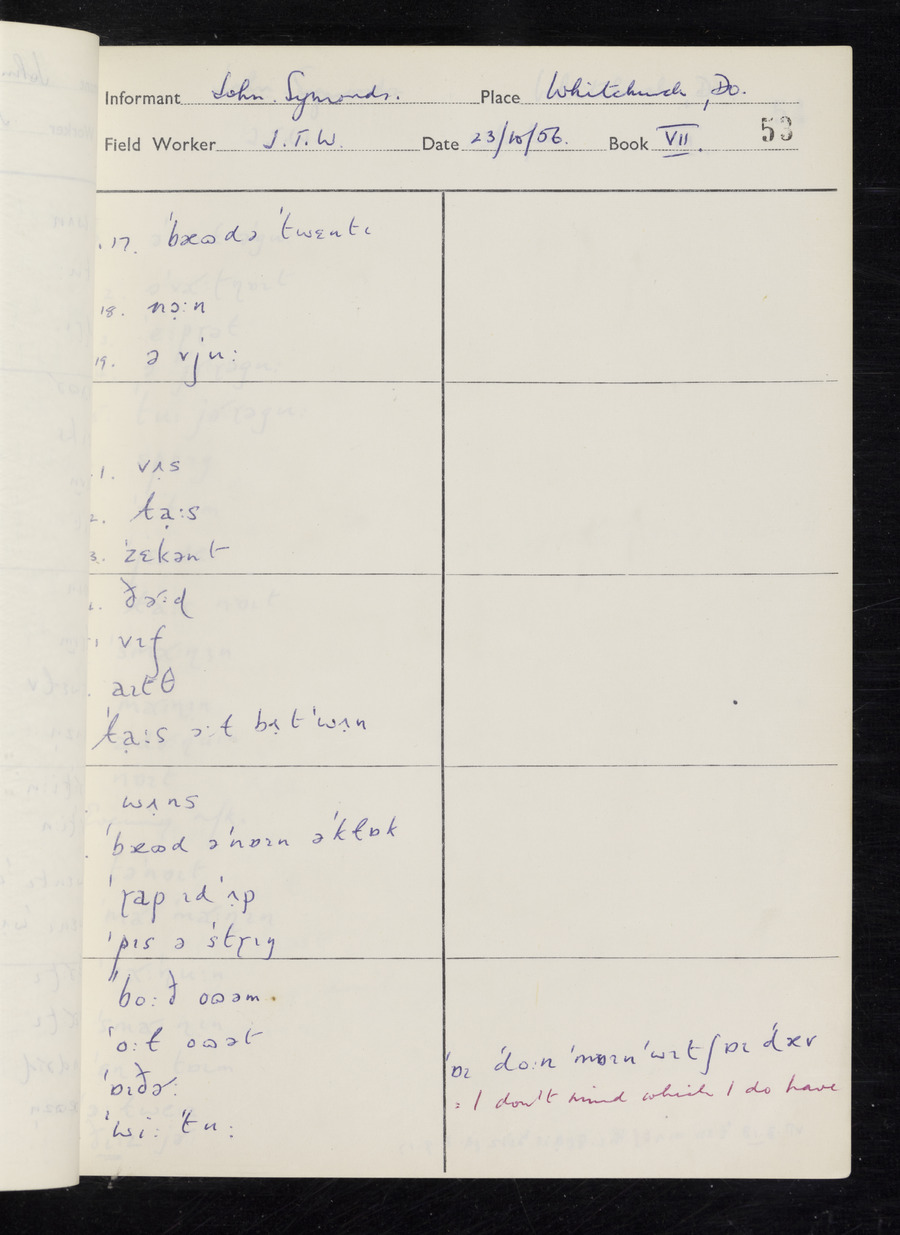 Informant John. Symonds. Place Whitchurch, Do.
Field Worker J.T.W. Date 23/10/56. Book VII. 53
17. ˈbæɷdə ˈtwɛntɪ
18. nɔ̣:n
19. ə vju:
1. vʌ̣s
2. ɫạ:s
3. ˈzɛkənt
ðə˞:d
vɪf
aɪtθ
ˈɫạ:s ɔ:ɫ bʌ̣t ˈwʌ̣n
wʌ̣ns
ˈbæɷd əˈnɒɪn əˈkɫɒk
ˈɽap ɪd ˈʌ̣p
ˈpɪs ə ˈstɽɪŋ
ˈbo:ð oɷəm
ˈo:ɫ oɷət
ˈɒɪðə˞:
ˈwi: ˈtu:
ˈɒɪ ˈdo:n ˈmɒɪn ˈwɪtʃ ɒɪ ˈdæv
= I don't mind which I do have